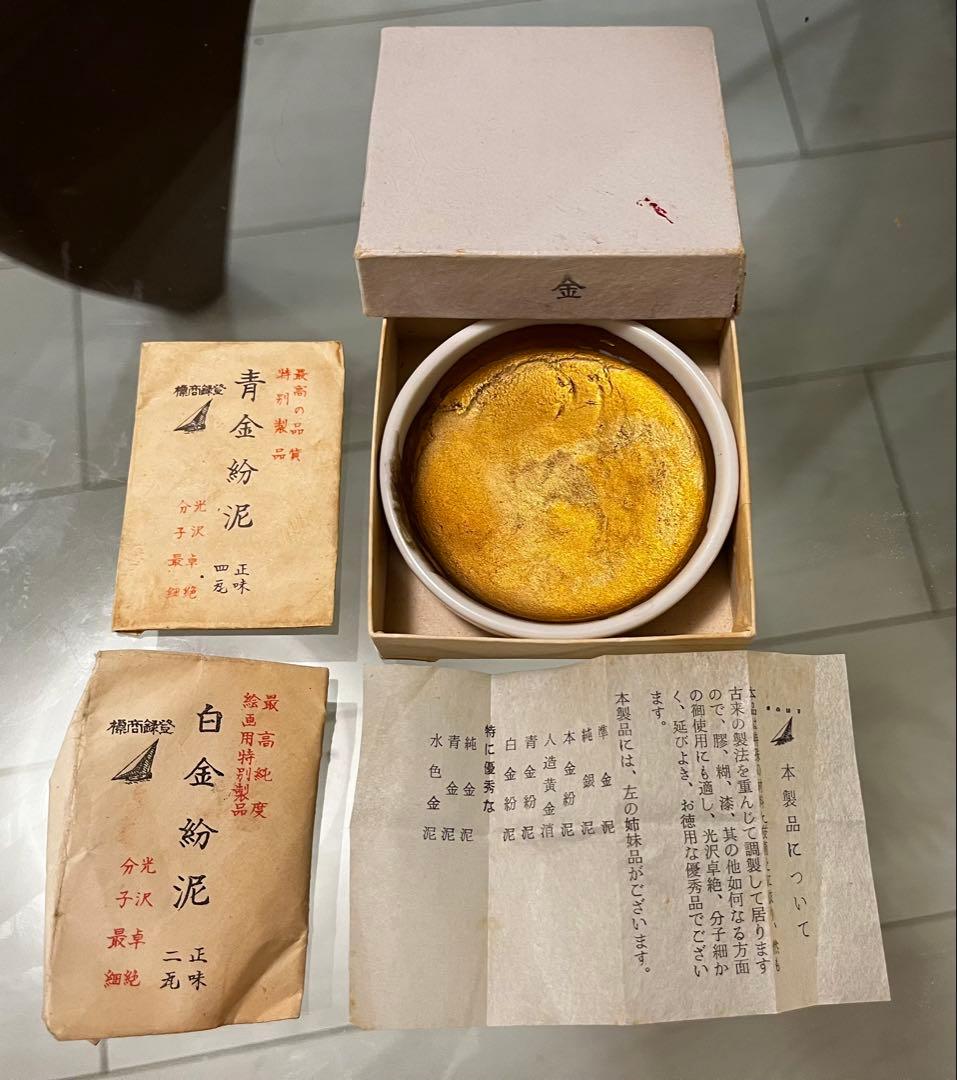 金
最高の品質
特別製品
青金紛泥
登録商標
光沢卓絶
分子最細
正味
四瓦
最高純度
絵画用特別製品
白金紛泥
登録商標
光沢卓絶
分子最細
正味
二瓦
本製品について
古来の製法を重んじて調製して居ります
ので、膠、糊、漆、其の他如何なる方面
の御使用にも適し、光沢卓絶、分子細か
く、延びよき、お徳用な優秀品でござい
ます。
本製品には、左の姉妹品がございます。
準金泥
純銀泥
本金紛泥
人造黄金消
青金紛泥
白金紛泥
特に優秀な
純金泥
青金泥
水色金泥